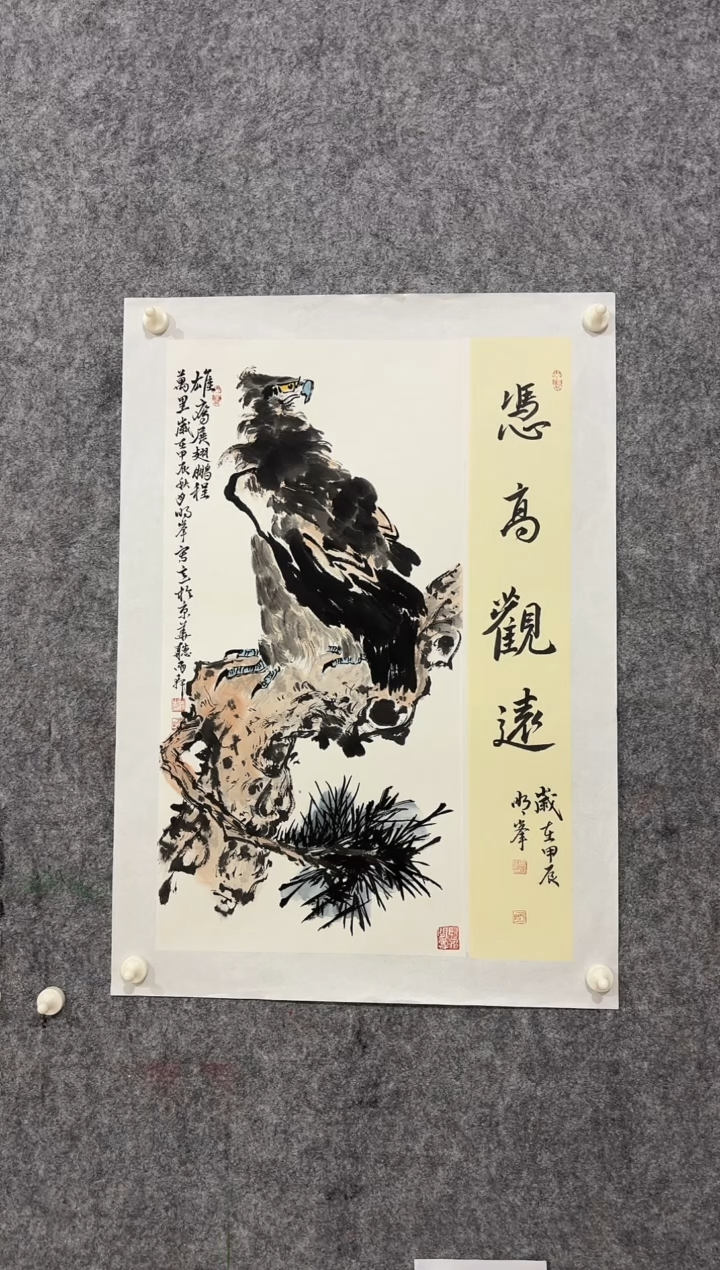 憑高觀遠
歲在甲辰
明峯
雄鷹展翅鵬程
萬里歲在甲辰秋月明峯寫意於京華聽雨軒